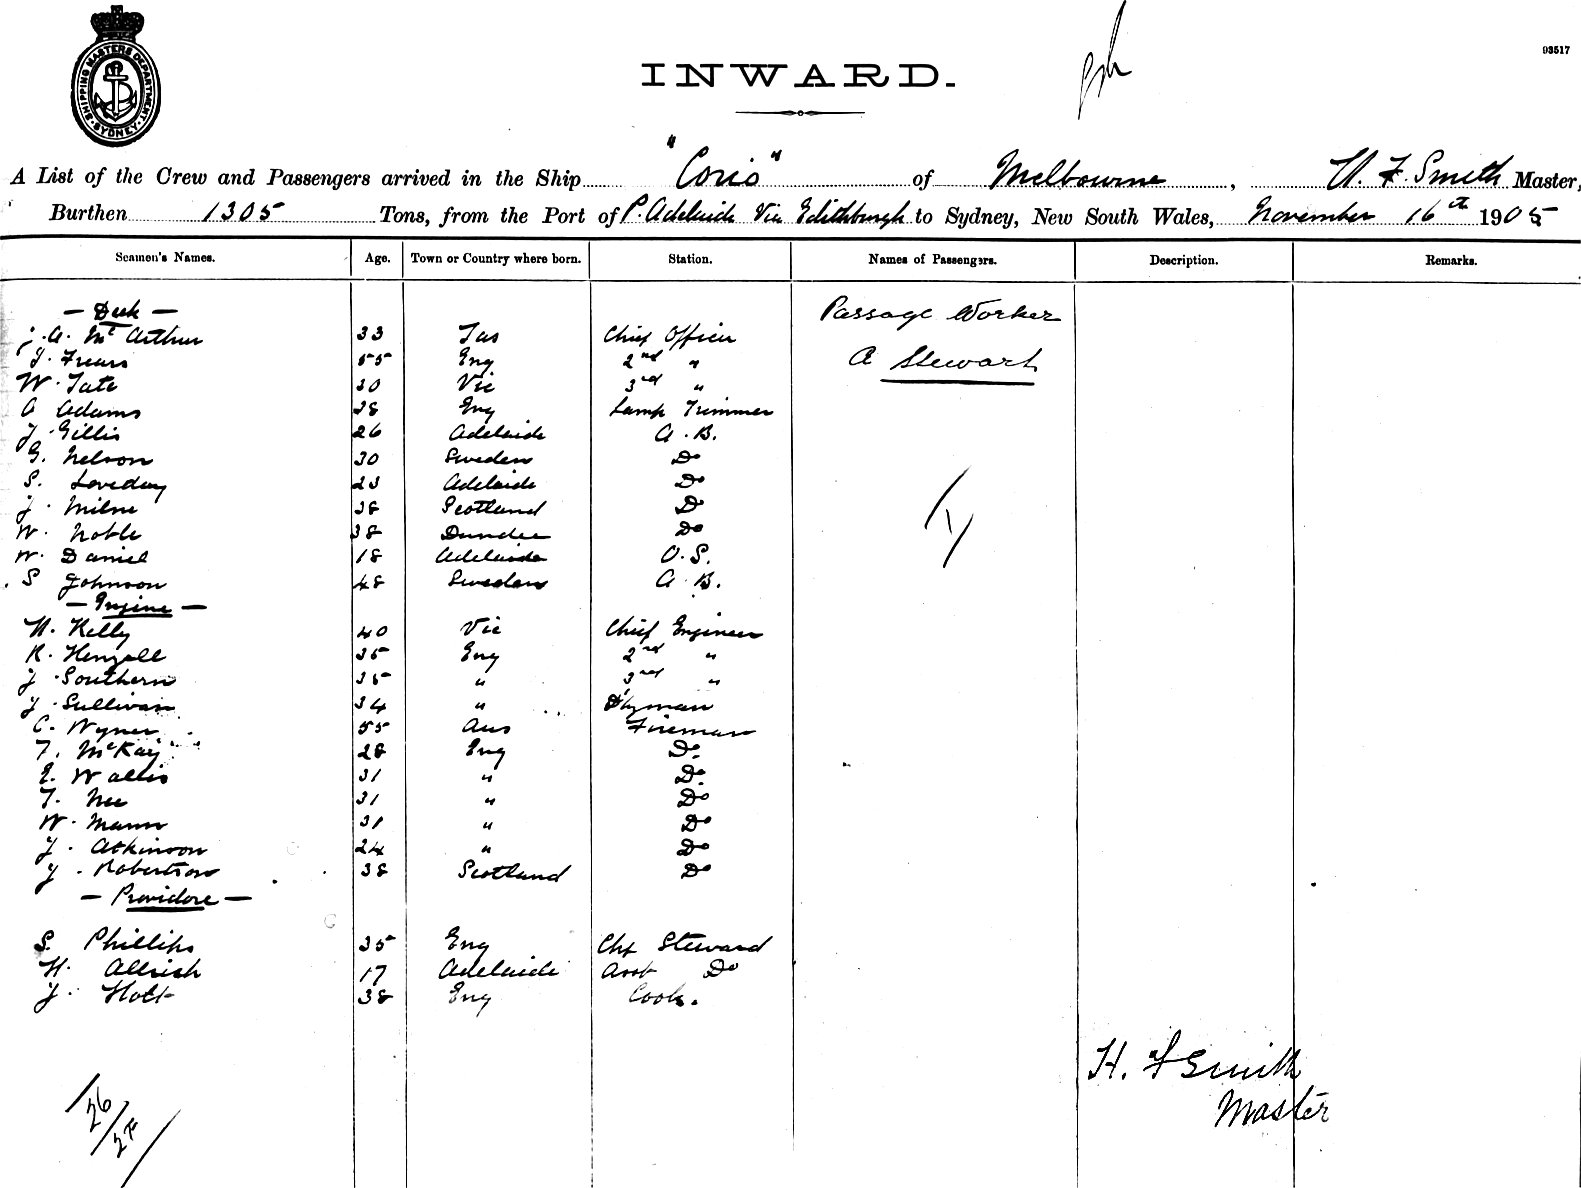 SHIPPING MASTERS DEPARTMENT SYDNEY
93517
INWARD.
A List of the Crew and Passengers arrived in the Ship "Corio" of Melbourne, H. F. Smith Master,
Burthen 1305 Tons, from the Port of P. Adelaide Via Edithburgh to Sydney, New South Wales, November 16th 1905
Seamen's Names. Age. Town or Country where born. Station. Names of Passengers. Description. Remarks.
— Deck — Passage Worker
J. A. McArthur 33 Tas Chief Officer
J. Frears 55 Eng 2nd " A Stewart
W. Tate 30 Vic 3rd "
A Adams 38 Eng Lamp Trimmer
J. Gillis 26 Adelaide A.B.
G. Nelson 30 Sweden Do
S. Loveday 23 Adelaide Do
J. Milne 38 Scotland Do
W. Noble 38 Dundee Do
W. Daniel 18 Adelaide O.S.
S Johnson 48 Sweden A.B.
— Engine —
H. Kelly 40 Vic Chief Engineer
R. Henzell 35 Eng 2nd "
J. Southern 35 " 3rd "
J. Sullivan 34 " D'kyman
C. Wyner 55 Aus Fireman
T. McKay 28 Eng Do
E. Wallis 31 " Do
T. Nee 31 " Do
W. Mann 31 " Do
J. Atkinson 24 " Do
J. Robertson 38 Scotland Do
— Providore —
S. Phillips 35 Eng Chf Steward
H. Allrich 17 Adelaide Asst Do
J. Holt 38 Eng Cook.
H. F Smith
Master
26/27